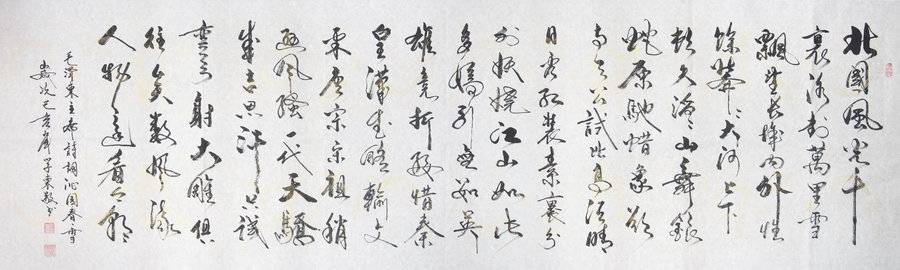 北國風光千
裏冰封萬里雪
飄望長城内外惟
餘莽〻大河上下
頓失滔〻山舞銀
蛇原馳蠟象欲
與天公試比高須晴
日看紅裝素裹分
外妖嬈江山如此
多嬌引無數英
雄競折腰惜秦
皇漢武略輸文
采唐宗宋祖稍
遜風騷一代天驕
成吉思汗只識
彎弓射大雕俱
往矣數風流
人物還看今朝
毛澤東主席詩詞沁園春雪
歲次己亥